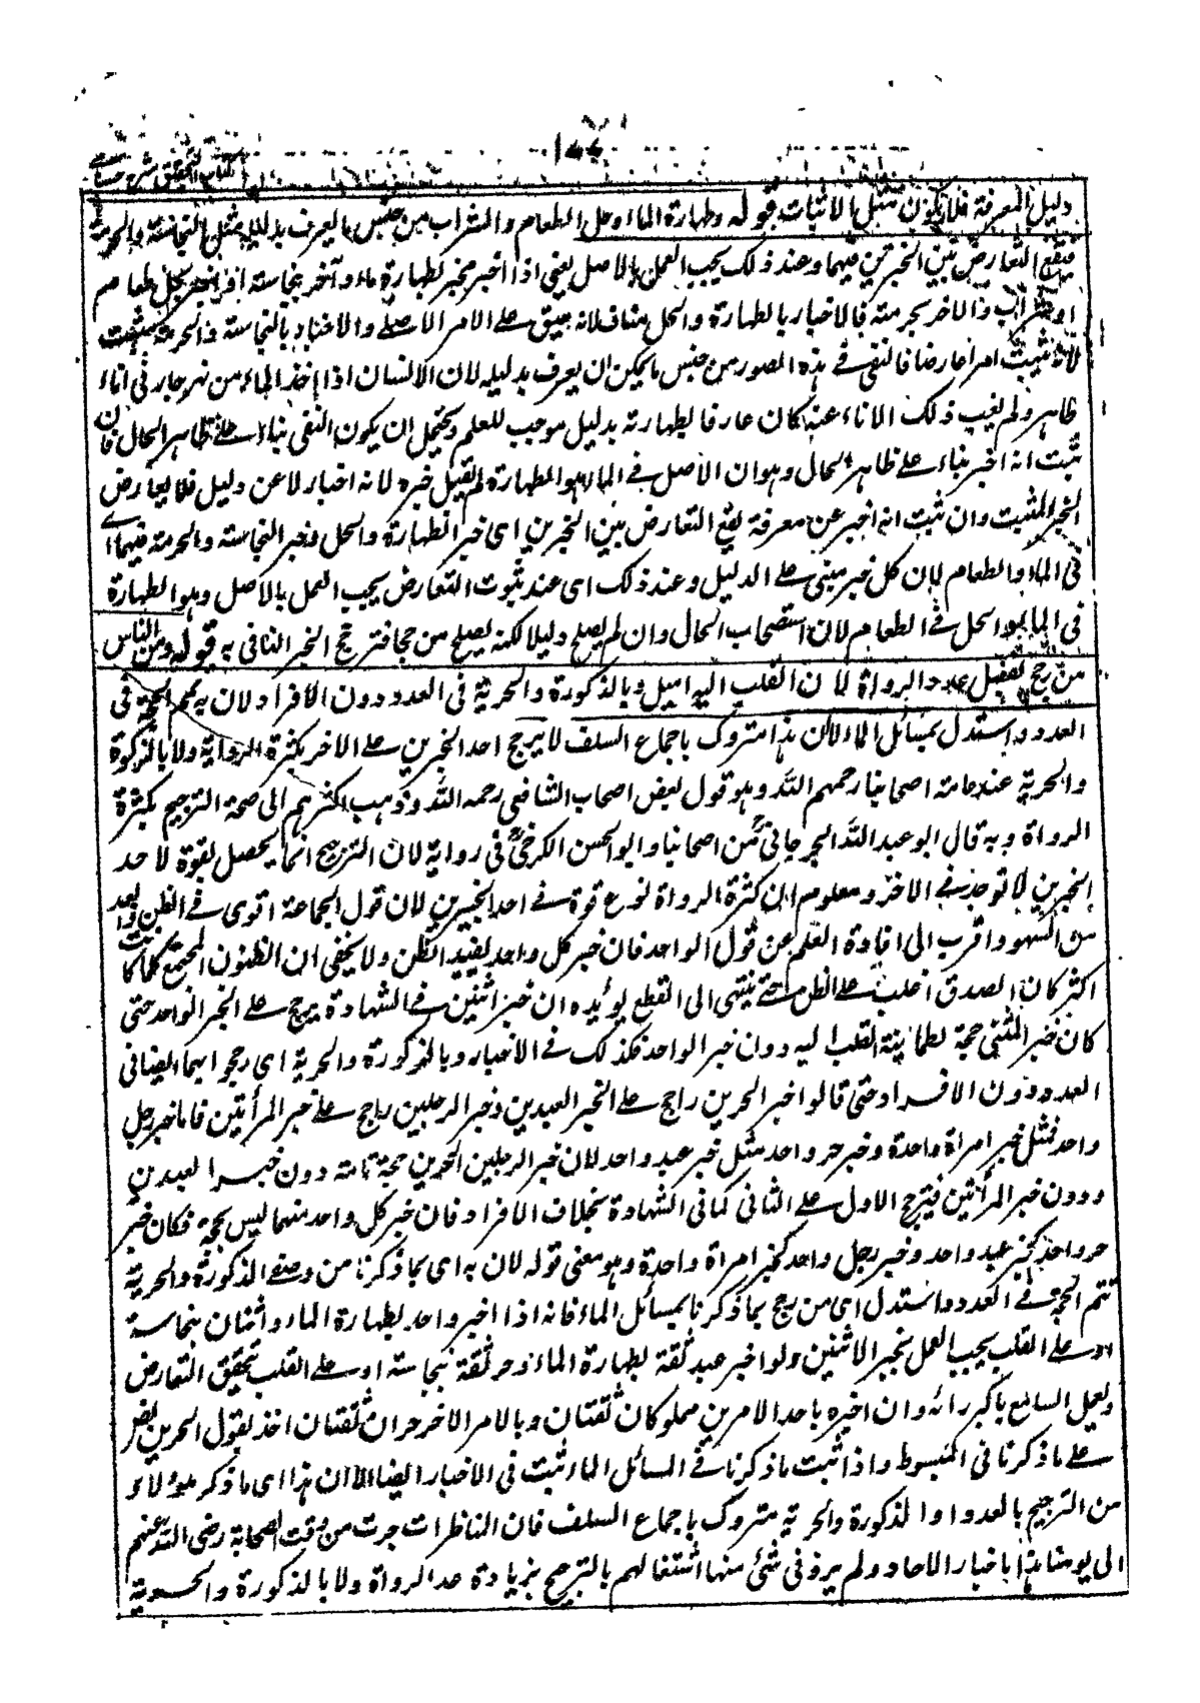 ١٧٧
كتاب التحقيق شرح حسامي
دليل المعرفة فلا يكون مثل الاثبات قوله وطهارة الماء وحل الطعام والشراب من جنس ما يعرف بدليله مثل النجاسة والحرمة
فيقع التعارض بين الخبرين فيهما وعند ذلك يجب العمل بالاصل يعنى اذا اخبر مخبر بطهارة ماء وآخر بنجاسته او اخبر بحل طعام
او شراب والاخر بحرمته فالاخبار بالطهارة والحل مناف لانه مبق على الامر الاصلى والاخبار بالنجاسة والحرمة مثبت
لانه يثبت امرا عارضا فالنفى فى هذه الصور من جنس ما يمكن ان يعرف بدليله لان الانسان اذا اخذ الماء من نهر جار فى اناء
طاهر ولم يغيب ذلك الاناء عنه كان عارفا بطهارته بدليل موجب للعلم ويحتمل ان يكون النفى بناء على ظاهر الحال فان
ثبت انه اخبر بناء على ظاهر الحال وهو ان الاصل فى الماء هو الطهارة لم يقبل خبره لانه اخبار لا عن دليل فلا يعارض
الخبر المثبت وان ثبت انه اخبر عن معرفة يقع التعارض بين الخبرين اى خبر الطهارة والحل وخبر النجاسة والحرمة فيهما اى
فى الماء والطعام لان كل خبر مبنى على الدليل وعند ذلك اى عند ثبوت التعارض يجب العمل بالاصل وهو الطهارة
فى الماء والحل فى الطعام لان استصحاب الحال وان لم يصلح دليلا لكنه يصلح مرجحا فترجح الخبر النافى به قوله ومن الناس
من رجح بفضل عدد الرواة لان القلب اليه اميل وبالذكورة والحرية فى العدد دون الافراد لان به يتم الحجة فى
العدد واستدل بمسائل الماء الا ان هذا متروك باجماع السلف لا يرجح احد الخبرين على الاخر بكثرة الرواية ولا بالذكورة
والحرية عند عامة اصحابنا رحمهم الله وهو قول بعض اصحاب الشافعى رحمه الله وذهب اكثرهم الى صحة الترجيح بكثرة
الرواة وبه قال ابو عبد الله الجرجانى من اصحابنا وابو الحسن الكرخى فى رواية لان الترجيح انما يحصل بقوة لاحد
الخبرين لا توجد فى الاخر ومعلوم ان كثرة الرواة نوع قوة فى احد الخبرين لان قول الجماعة اقوى فى الظن وابعد
من السهو واقرب الى افادة العلم من قول الواحد فان خبر كل واحد يفيد الظن ولا يخفى ان الظنون المجتمع كلما كانت
اكثر كان الصدق اغلب على الظن حتى ينتهى الى القطع يؤيده ان خبر اثنين فى الشهادة يرجح على الخبر الواحد حتى
كان خبر المثنى حجة لطمانينة القلب اليه دون خبر الواحد فكذلك فى الاخبار وبالذكورة والحرية اى رجحوا بهما ايضا فى
العدد دون الافراد حتى قالوا خبر الحرين راجح على الخبر العبدين وخبر الرجلين راجح على خبر المرأتين فاما خبر رجل
واحد فمثل خبر امراة واحدة وخبر حر واحد مثل خبر عبد واحد لان خبر الرجلين الحرين حجة تامة دون خبر العبدين
ودون خبر المرأتين فيترجح الاول على الثانى كما فى الشهادة بخلاف الافراد فان خبر كل واحد منهما ليس بحجة فكان خبر
حر واحد كخبر عبد واحد وخبر رجل واحد كخبر امراة واحدة وهو معنى قوله لان به اى بما ذكرنا من وصف الذكورة والحرية
تتم الحجة فى العدد واستدل اى من رجح بما ذكرنا بمسائل الماء فانه اذا اخبر واحد بطهارة الماء واثنان بنجاسته
او على القلب يجب العمل بخبر الاثنين ولو اخبر عبد ثقة بطهارة الماء وحر ثقة بنجاسته او على القلب تحقق التعارض
ويعمل السامع باكبر رائه وان اخبره باحد الامرين مملوكان ثقتان وبالامر الاخر حران ثقتان اخذ بقول الحرين نص
على ما ذكرنا فى المبسوط واذا ثبت ما ذكرنا فى المسائل الماء ثبت فى الاخبار ايضا الا ان هذا اى ما ذكر هؤلاء
من الترجيح بالعدد او الذكورة والحرية متروك باجماع السلف فان المناظرات جرت من وقت الصحابة رضى الله عنهم
الى يومنا هذا باخبار الاحاد ولم يرو فى شئ منها اشتغالهم بالترجيح بزيادة عدد الرواة ولا بالذكورة والحرية